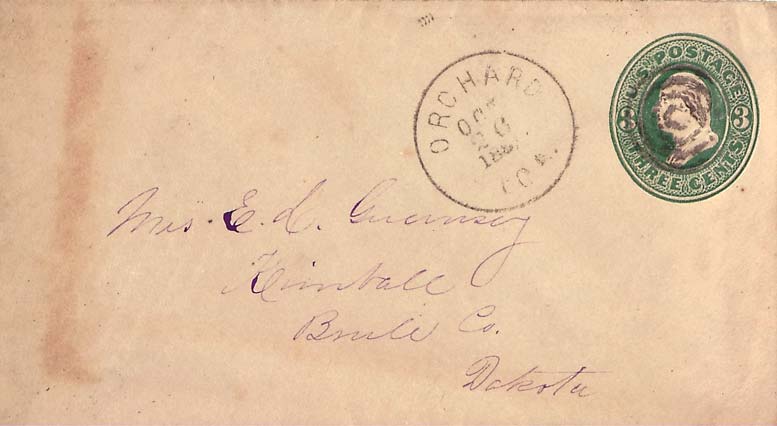 ORCHARD
OCT
20
188
U.S. POSTAGE
3 3
THREE CENTS
Mrs. E. L. Guernsey
Kimball
Brule Co.
Dakota